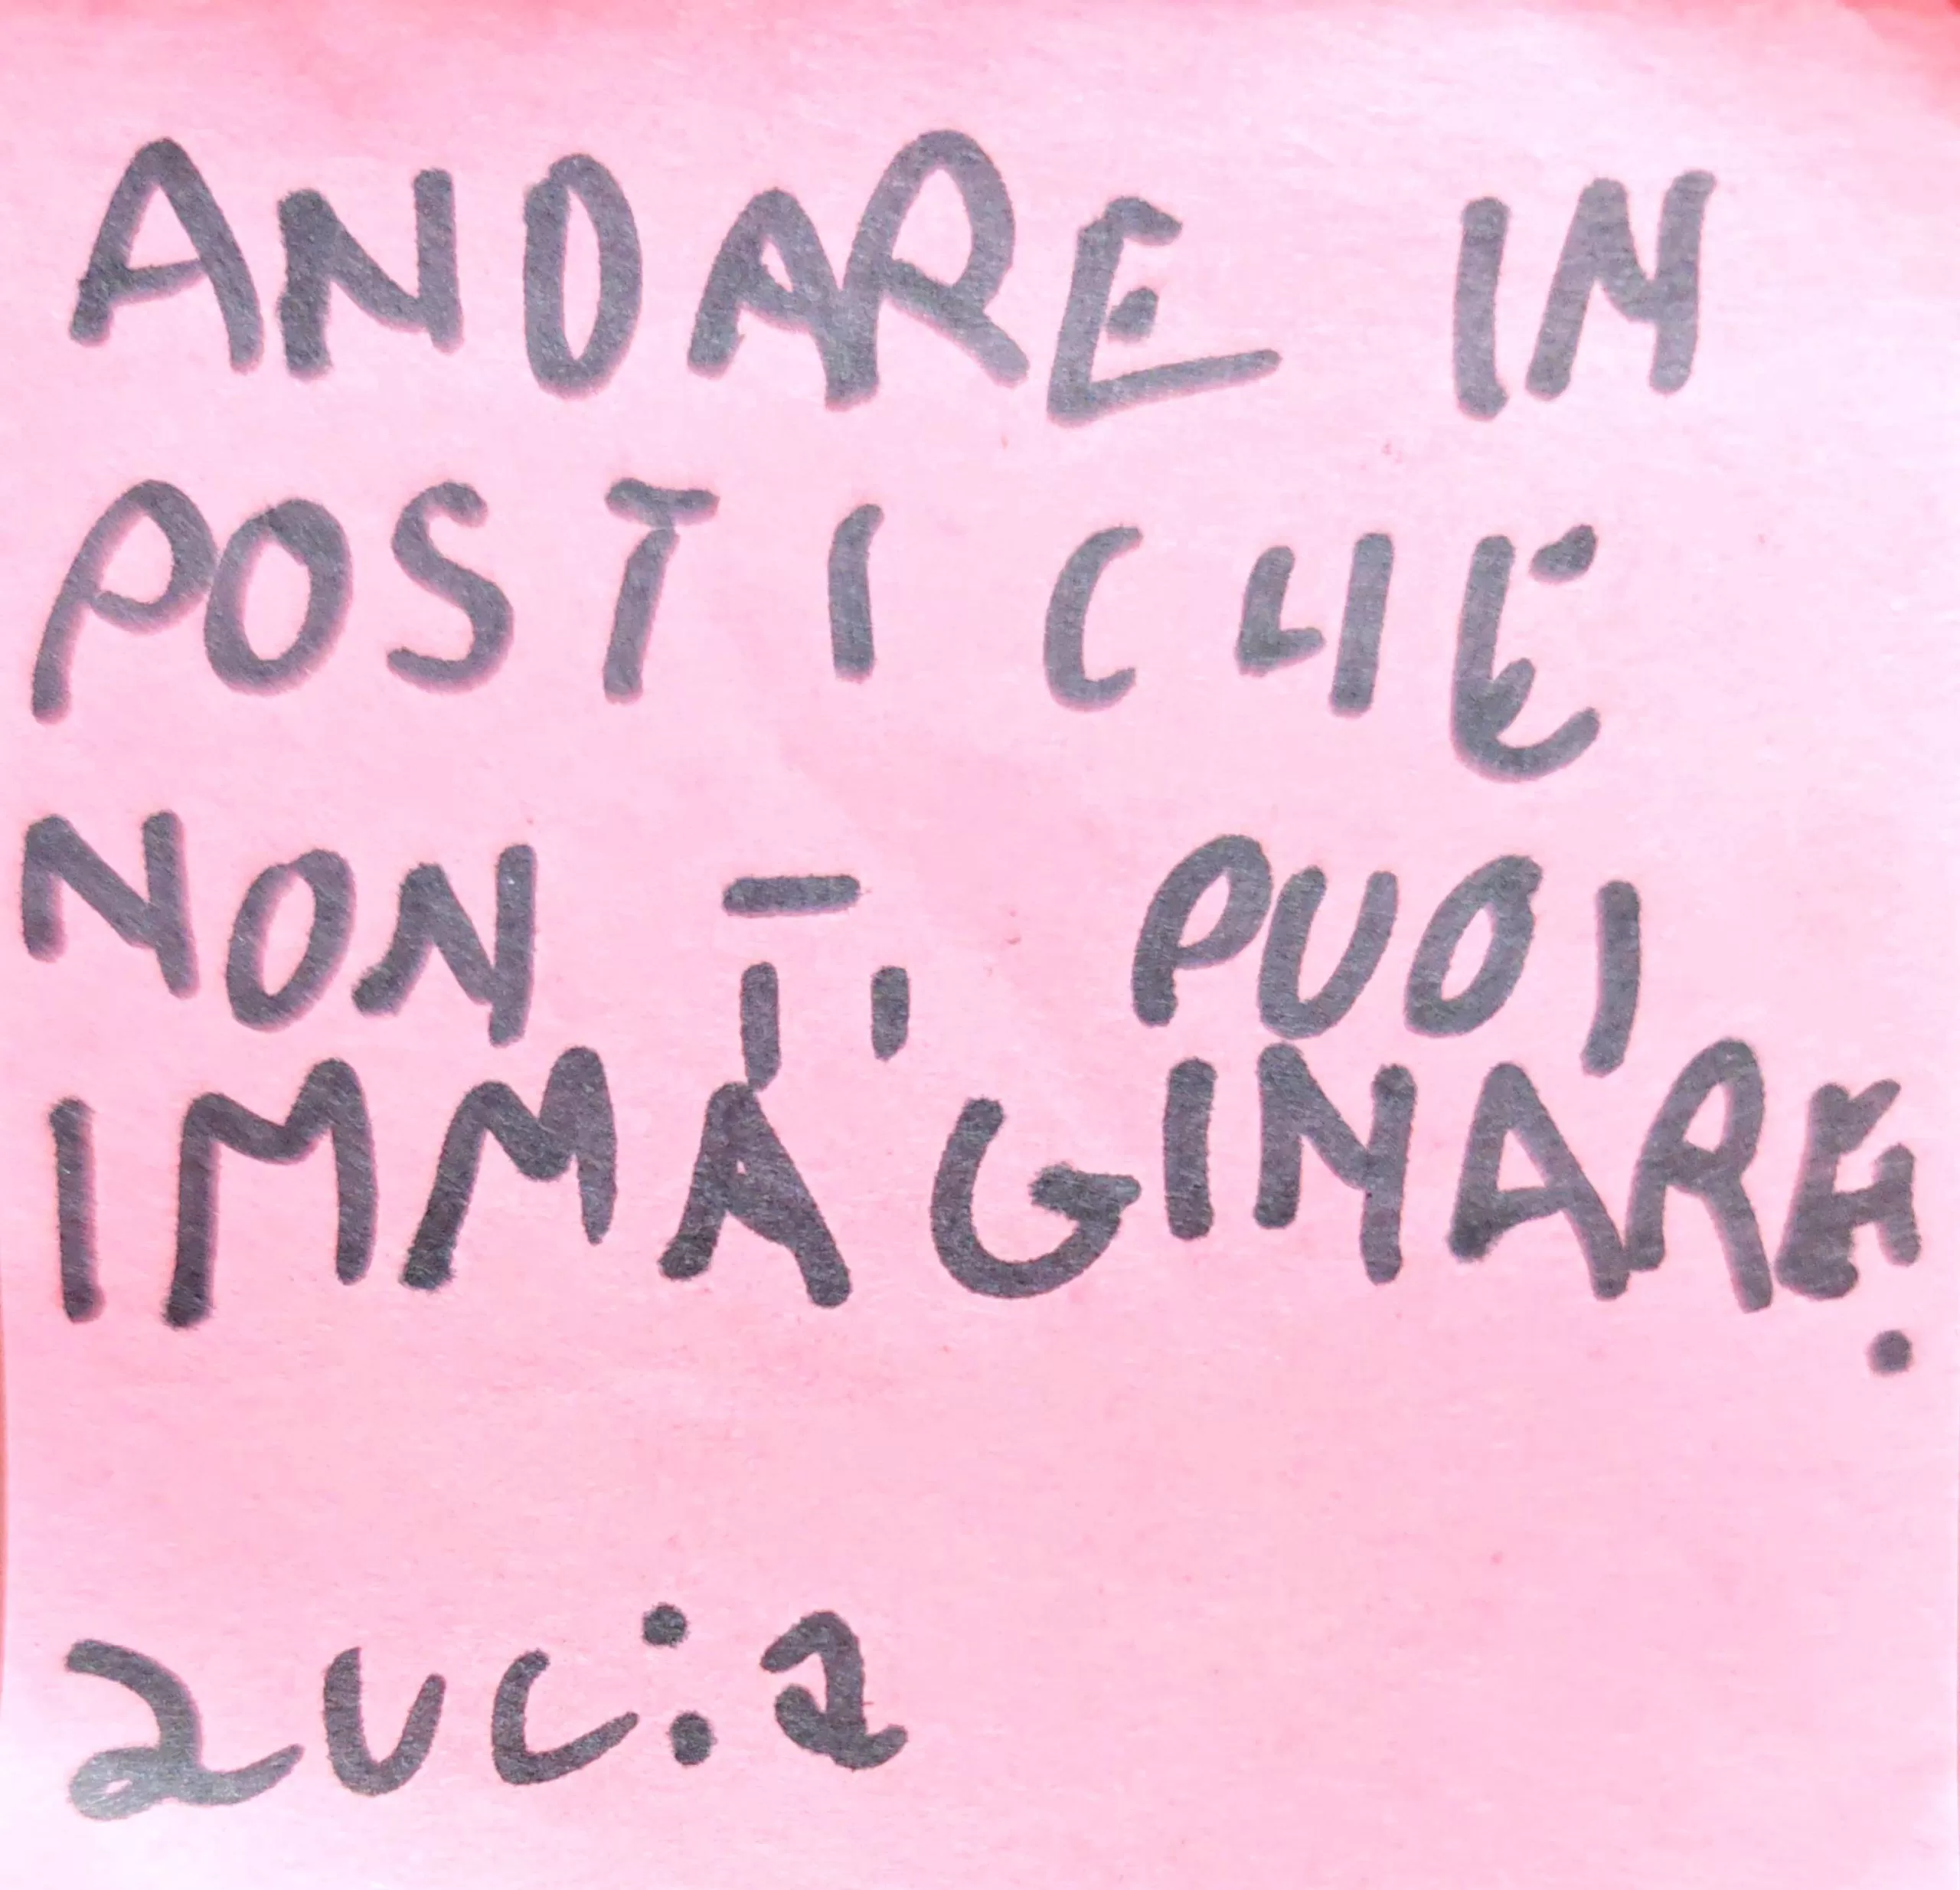 ANDARE IN
POSTI CHE
NON TI PUOI
IMMAGINARE.
Lucia